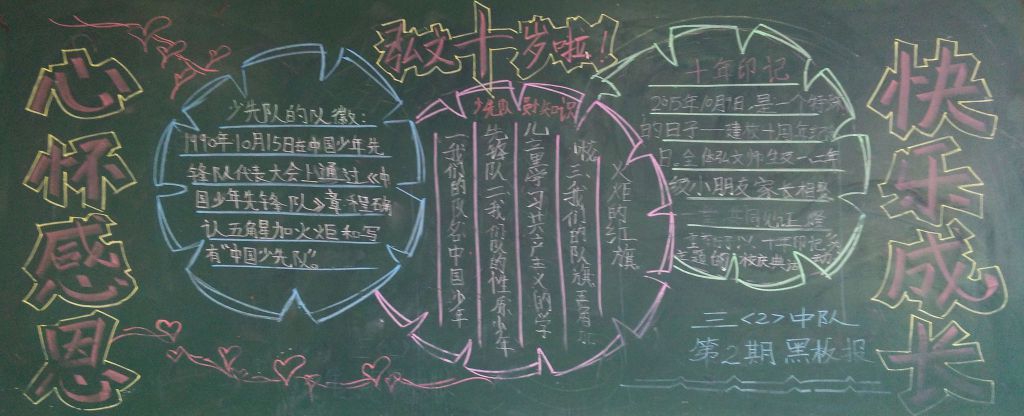 心怀感恩
弘文十岁啦！
少先队的队徽：
1990年10月15日在中国少年先
锋队代表大会上通过《中
国少年先锋队》章程确
认五角星加火炬和写
有"中国少先队"。
少先队 知识
一我们的队名中国少年
先锋队二我们队的性质少年
儿童学习共产主义的学
校三我们的队旗五角星
火炬的红旗
十年印记
2015年10月9日是一个特殊
的日子——建校十周年
日。全体弘文师生及一二年
级小朋友家长相聚
一堂共同见证
十年印记
主题的校庆典活动
三<2>中队
第2期黑板报
快乐成长